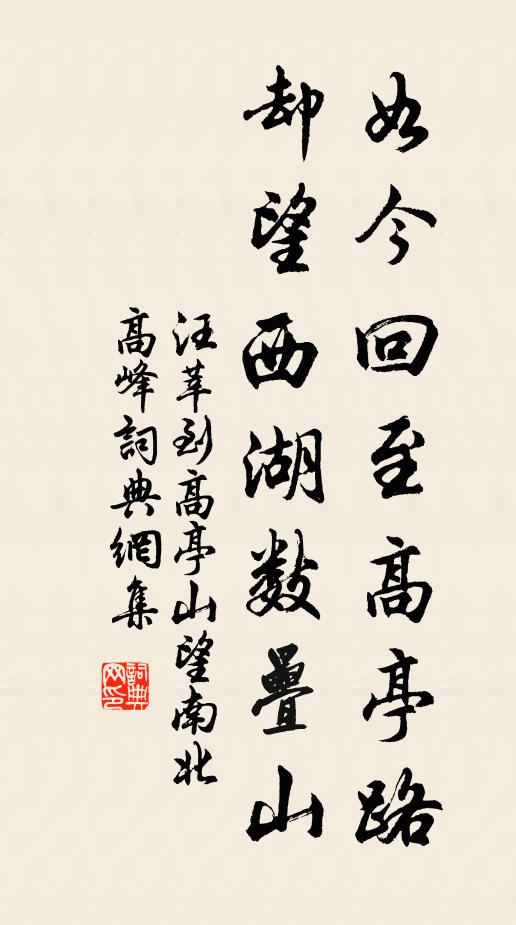 如今回至高亭路
却望西湖數疊山
汪莘到高亭山望南北
高峰詞典網集
詞典
网印